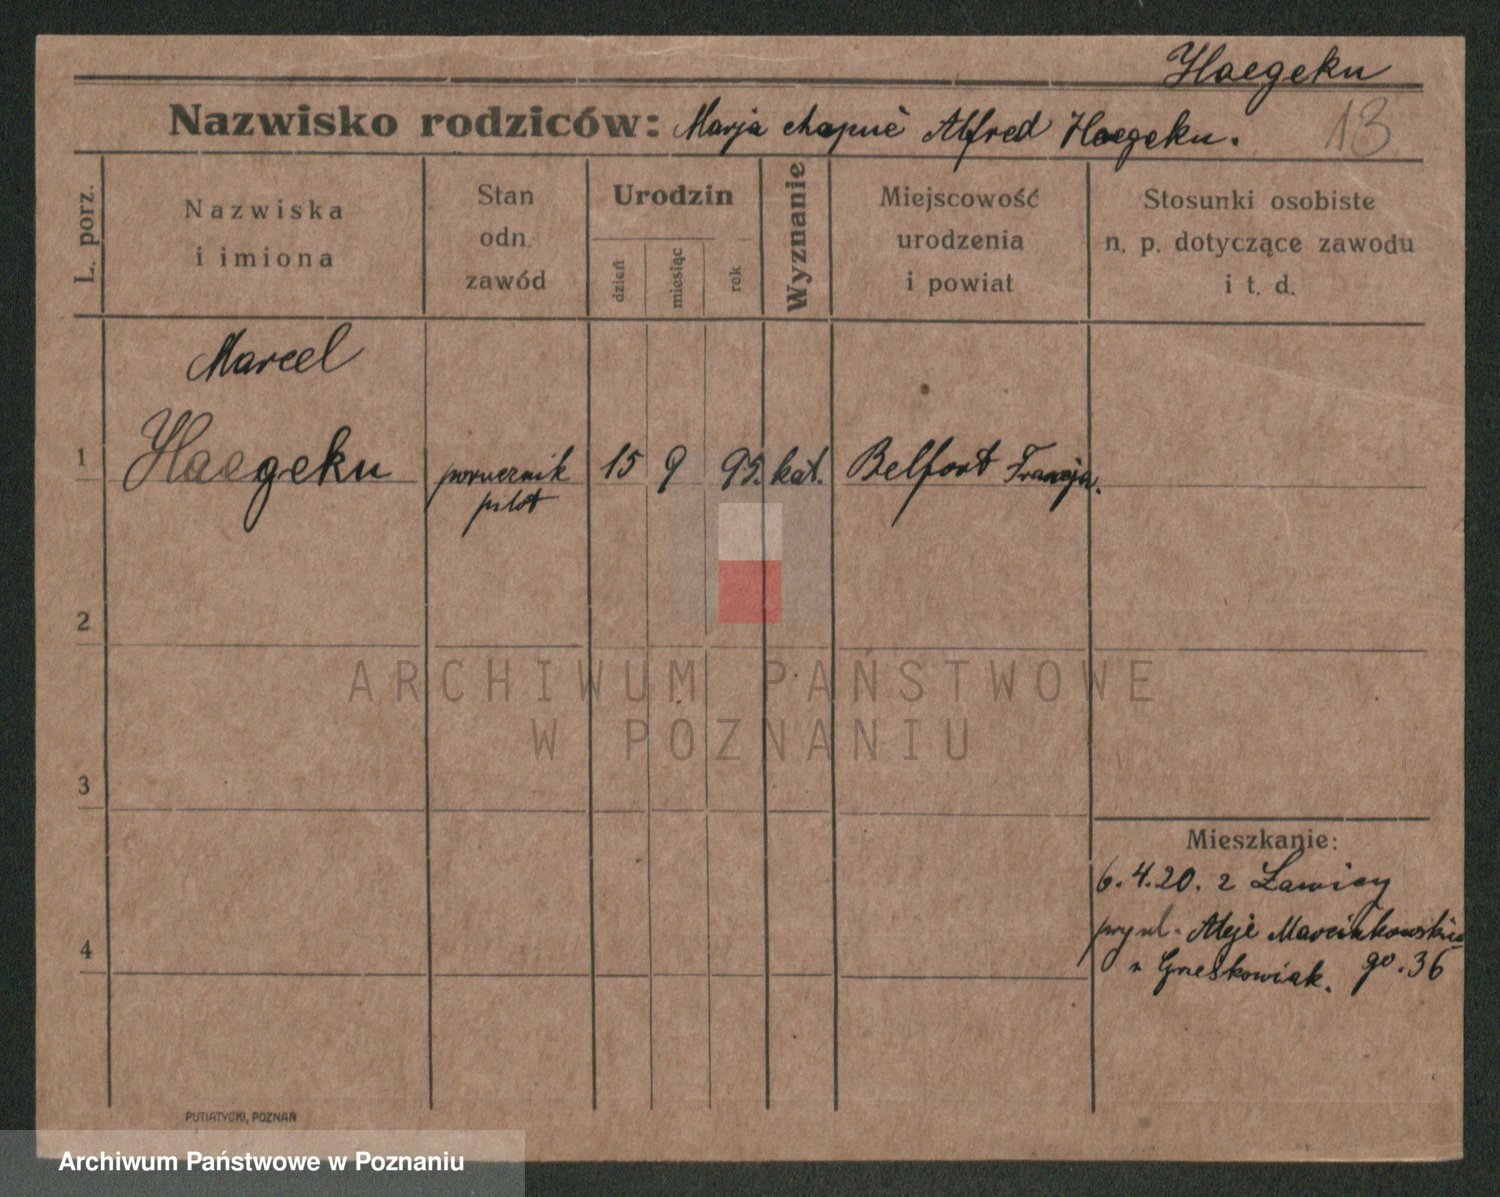 Haegeku
Nazwisko rodziców: Marja chapuè Alfred Haegeku. 13
L. porz.
Nazwiska
i imiona
Stan
odn.
zawód
Urodzin
dzień
miesiąc
rok
Wyznanie
Miejscowość
urodzenia
i powiat
Stosunki osobiste
n. p. dotyczące zawodu
i t. d.
Marcel
1 Haegeku porucznik 15 9 95. kat. Belfort Francja.
pilot
2
ARCHIWUM PAŃSTWOWE
W POZNANIU
3
Mieszkanie:
6.4.20. z Ławicy
przy ul. Aleje Marcinkowskie
go. 36
4
u Grześkowiak.
PUTIATYCKI, POZNAŃ
Archiwum Państwowe w Poznaniu